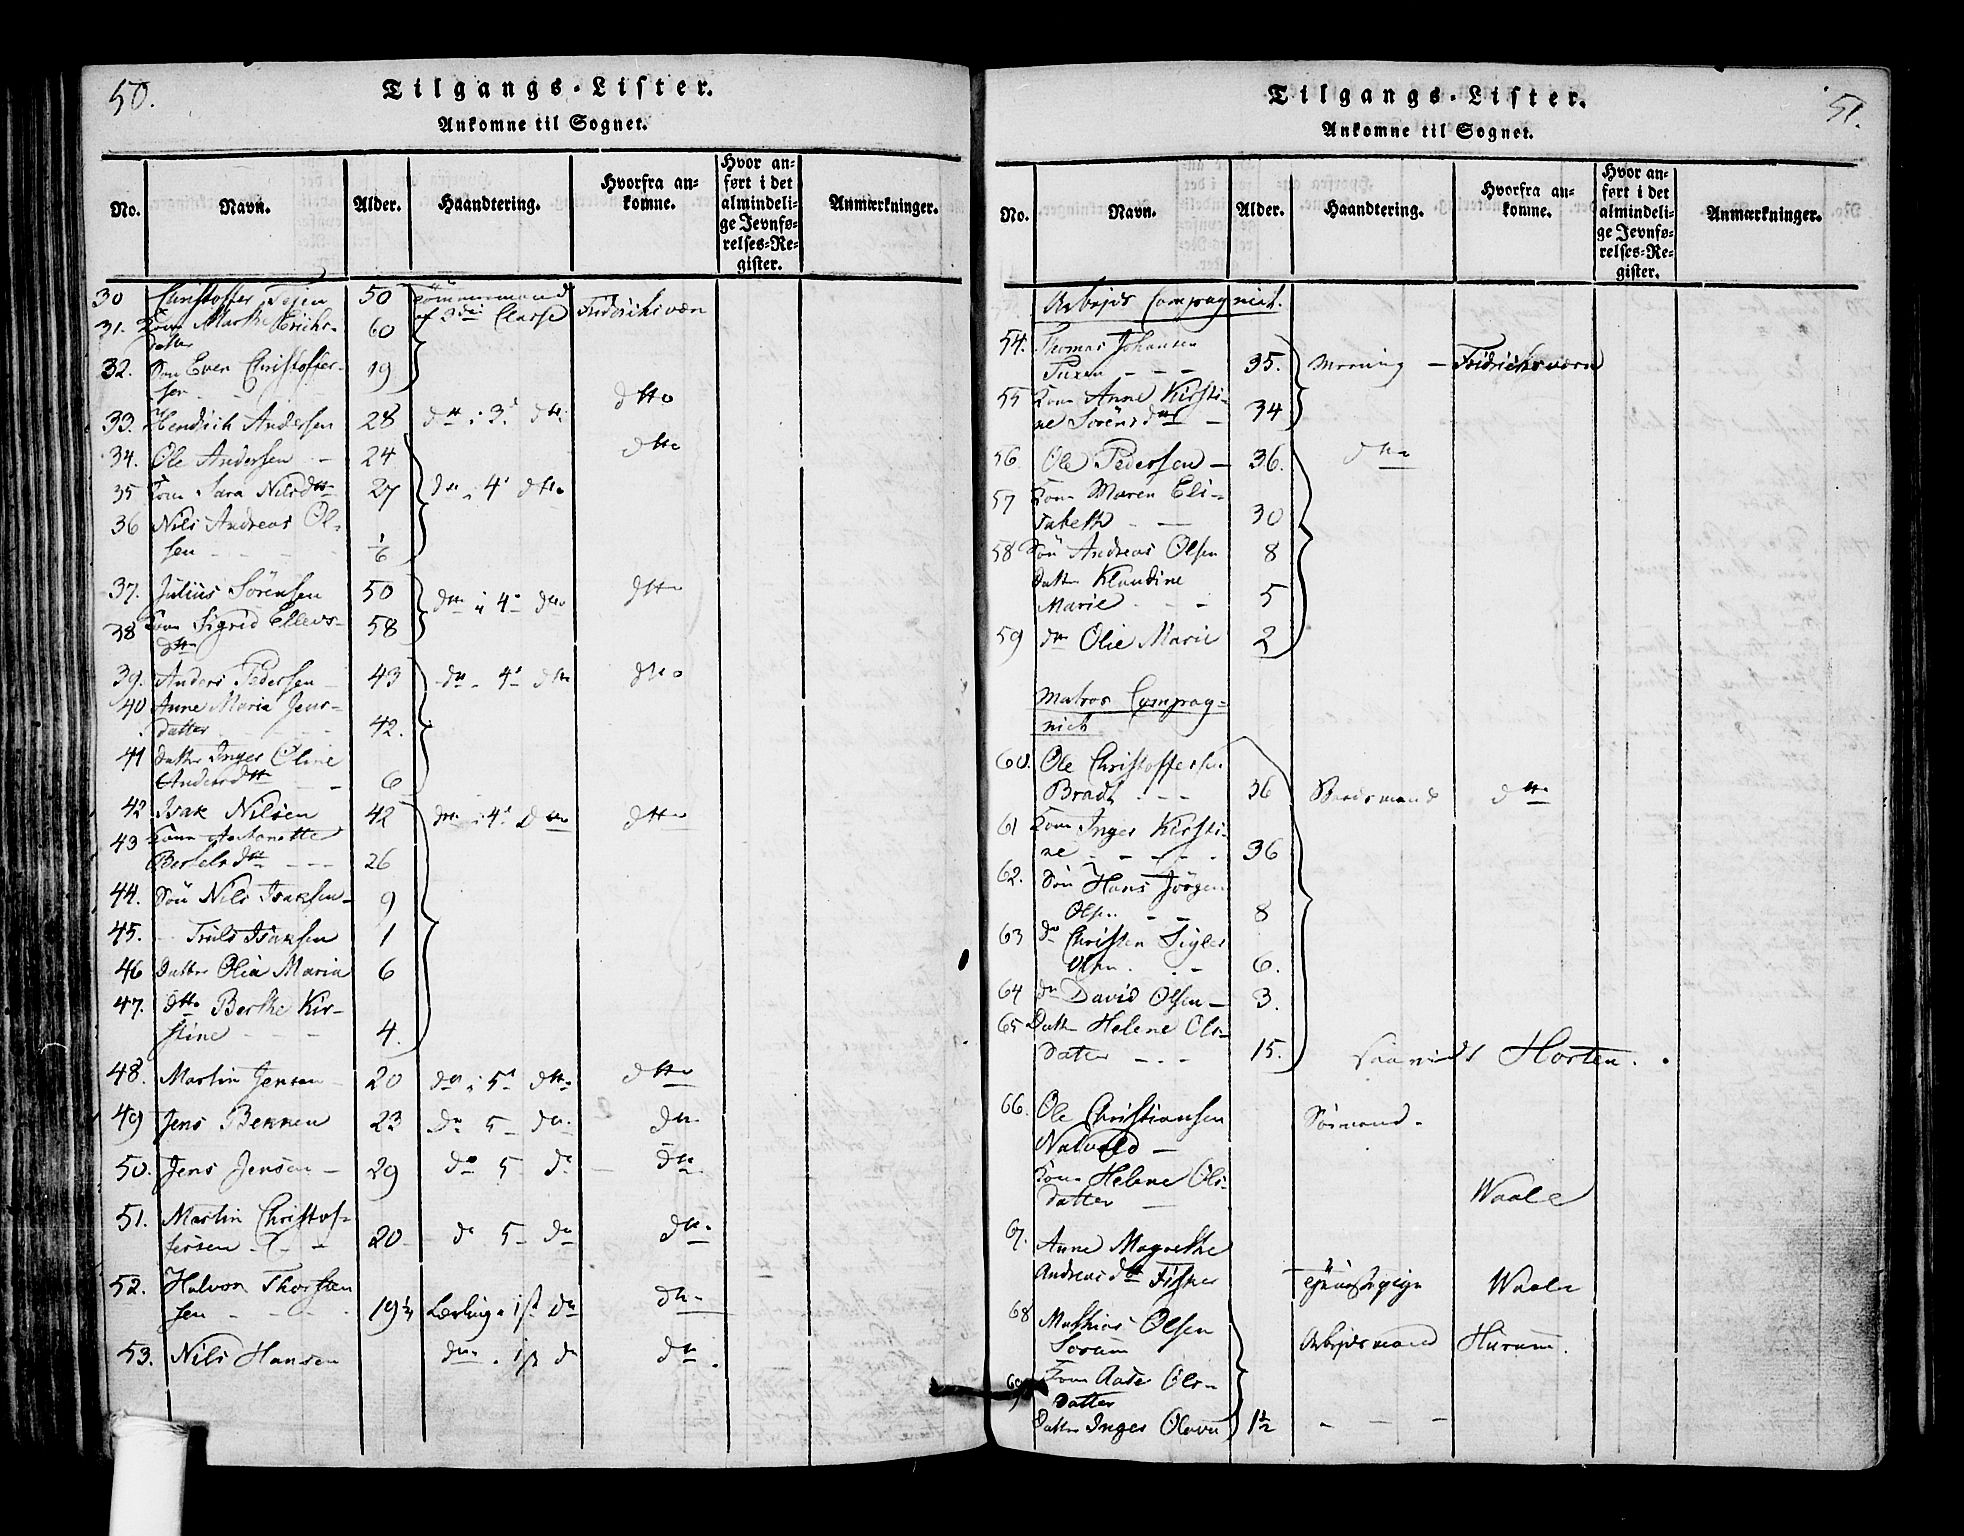 50.
Tilgangs-Lister.
Ankomne til Sognet.
No. Navn. Alder. Haandtering. Hvorfra ankomne. Hvor anført i det almindelige Jevnførelses-Register. Anmærkninger.
30 Christoffer 50 Tömmermand Fridrichsværn
31. Kone Marthe Erichs- 60 af 2den Classe
datter
32. Søn Even Christoffer- 19
sen
33. Hendrich Andersen 28 do i 3d do dtto
34. Ole Andersen 24 dtto
35 Kone Sara Nilsdtr 27 do i 4d dtto
36 Nils Andreas Ol-
sen 1/6
37. Julius Sörensen 50 dtto i 4d do dtto
38 Kone Sigrid Ellevs- 58
dtr
39. Anders Pedersen 43 do 4d dtto dtto
40 Anne Maria Jens-
datter 42.
41 Datter Inger Oline
Andersdtr 6
42 Isak Nilsen 42 dtto i 4d dtto dtto
43 Kone Antonette
Bertelsdtr 26
44. Søn Nils Isaksen 9
45. Truls Isaksen 1
46 Datter Olia Maria 6
47. dtto Berthe Kir-
stine 4.
48. Martin Jensen 20 do i 5d dtto dtto
49 Jens Bekken 23 do 5 do do
50. Jens Jensen 29 do 5 do do
51. Martin Christof-
fersen 20 do 5 do do
52. Halvor Thorsten
sen 19½ Lærling 1st do do
53. Nils Hansen do 1st do do
51.
Tilgangs-Lister.
Ankomne til Sognet.
No. Navn. Alder. Haandtering. Hvorfra ankomne. Hvor anført i det almindelige Jevnførelses-Register. Anmærkninger.
Arbejds Compagniet.
54. Thomas Johansen
35. Fridrichsværn
55 Kone Anne Kirsti-
ne Sörensdtr 34
56 Ole Pedersen 36. dtto
57 Kone Maren Eli-
sabeth 30
58 Søn Andreas Olsen 8
Datter Klaudine
Marie 5
59 do Olie Marie 2
Matros Compag-
niet
60. Ole Christoffersen
Bradt 36 Baadsmand dtto
61 Kone Inger Kirsti-
ne 36
62. Søn Hans Jörgen
Olsen 8
63 do Christen
Olsen 6.
64 do David Olsen 3.
65 Datter Helene Ols-
datter 15. Horten.
66. Ole Christiansen Söimand.
Nalvald
Kone Helene Ols- Waale
datter
67. Anne Magrethe
Andreasdtr Fisker Tjenestepige Waale
68 Mathias Olsen
Arbejdsmand Hurum.
69 Kone Aase Ols-
datter
Datter Inger Olava 1½